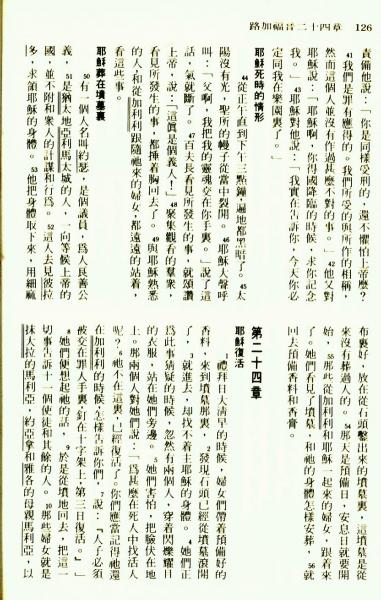 路加福音二十四章 126
責備他說:「你是同樣受刑的,還不懼怕上帝麼?
41我們是罪有應得的,我們所受的與所作的相稱,
然而這個人並沒有作過甚麼不對的事。」42他又對
耶穌說:「耶穌啊,你得國降臨的時候,求你記念
我。」43耶穌對他說:「我實在告訴你,今天你必
定同我在樂園裏了。」
耶穌死時的情形
44從正午直到下午三點鐘,遍地都黑暗了。45太
陽沒有光,聖所的幔子從當中裂開。46耶穌大聲呼
叫:「父啊,我把我的靈魂交在你手裏。」說了這
話,氣就斷了。47百夫長看見所發生的事,就頌讚
上帝,說:「這眞是個義人!」48聚集觀看的羣眾,
看見所發生的事,都捶着胸回去了。49與耶穌熟悉
的人,和從加利利跟隨祂來的婦女,都遠遠的站着,
看這些事。
耶穌葬在墳墓裏
50有一個人名叫約瑟,是個議員,爲人良善公
義,51是猶太地亞利馬太城的人,一向等候上帝的
國,並不附和眾人的計謀和行爲。52這人去見彼拉
多,求領耶穌的身體。53他把身體取下來,用細麻
布裹好,放在從石頭鑿出來的墳墓裏,這墳墓是從
來沒有葬過人的。54那天是預備日,安息日就要開
始,55那些從加利利和耶穌一起來的婦女,跟着來
了。她們看見了墳墓,和祂的身體怎樣安葬,56就
回去預備香料和香膏。
第二十四章
耶穌復活
1禮拜日大清早的時候,婦女們帶着預備好的
香料,來到墳墓那裏,2發現石頭已經從墳墓滾開
了,3就進去,却找不着主耶穌的身體。4她們正
爲此事猜疑的時候,忽然有兩個人,穿着閃爍耀目
的衣服,站在她們旁邊。5她們害怕,把臉伏在地
上。那兩個人對她們說:「爲甚麼在死人中找活人
呢?6祂不在這裏,已經復活了。你們應當記得祂還
在加利利的時候,怎樣告訴你們,7說:『人子必須
被交在罪人手裏,釘在十字架上,第三日復活。』」
8她們便想起祂的話,9於是從墳地回去,把這一
切事告訴十一個使徒和其餘的人。10那些婦女就是
抹大拉的馬利亞,約亞拿和雅各的母親馬利亞,以